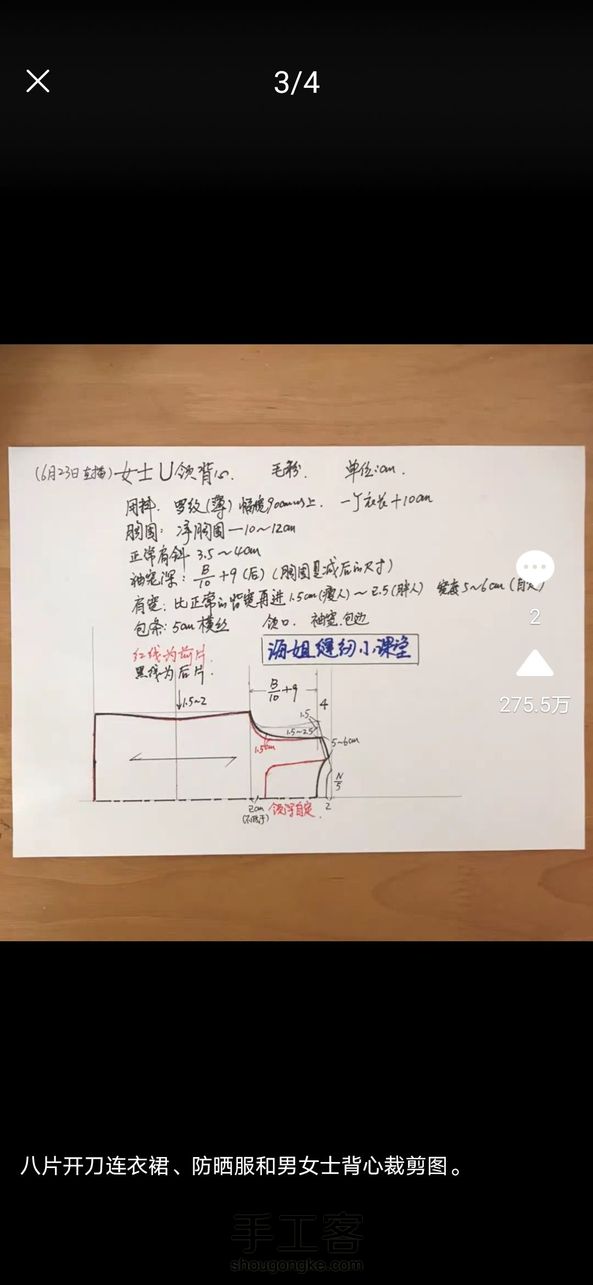 3/4
(6月23日直播)女士U领背心. 毛粉. 单位:cm.
用料. 罗纹(薄) 幅宽90cm以上. 一个衣长+10cm
胸围: 净胸围-10~12cm
正常肩斜 3.5~4cm
袖笼深: B/10+9(后) (胸围是减后的尺寸)
肩宽: 比正常的肩宽再进1.5cm(瘦人)~2.5(胖人) 宽度5~6cm(自定)
包条: 5cm横丝 领口. 袖笼.包边
2
红线为前片.
海姐缝纫小课堂
黑线为后片.
B/10+9
275.5万
1.5~2
4
1.5
1.5~2.5
5~6cm
1.5cm
N/5
2cm
领深自定.
2
八片开刀连衣裙、防晒服和男女士背心裁剪图。
手工客
shougongke.com